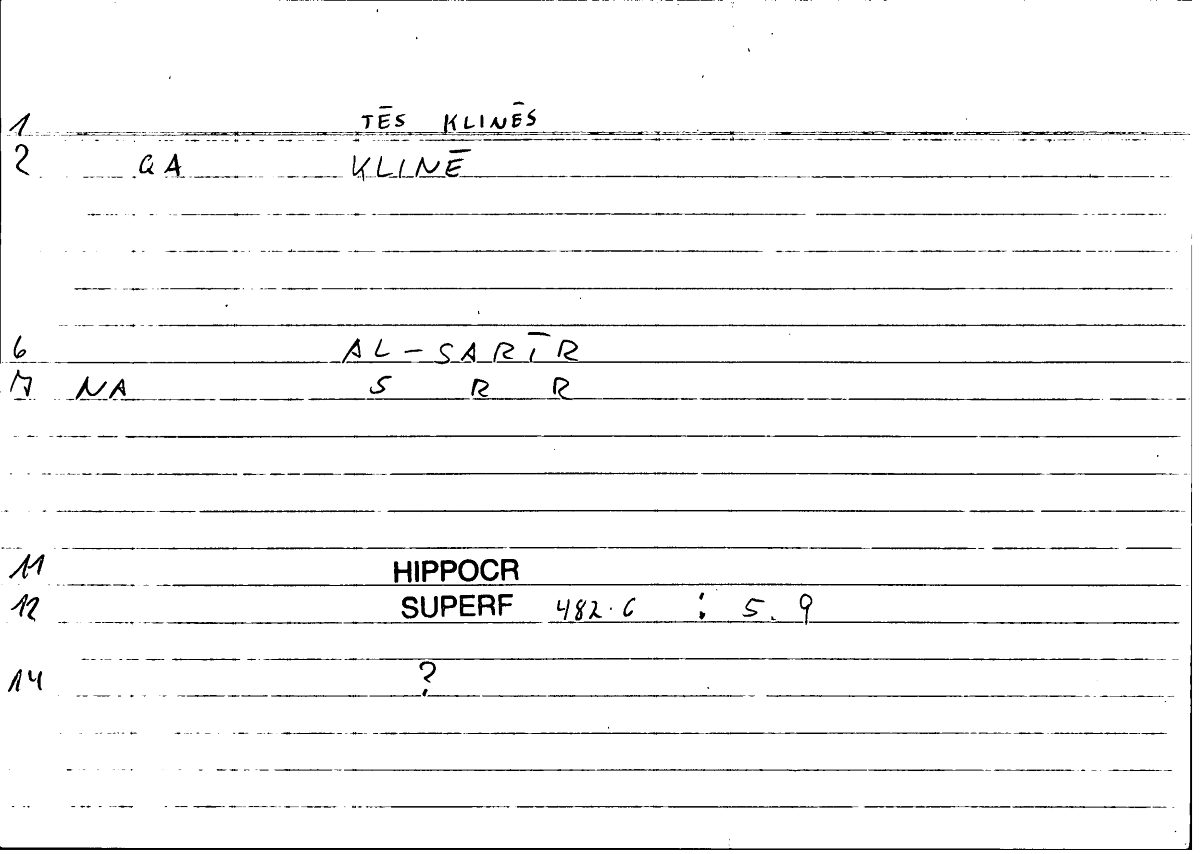 1 TĒS KLINĒS
2 GA KLINĒ
6 AL-SARĪR
7 NA S R R
11 HIPPOCR
12 SUPERF 482.6 : 5.9
14 ?